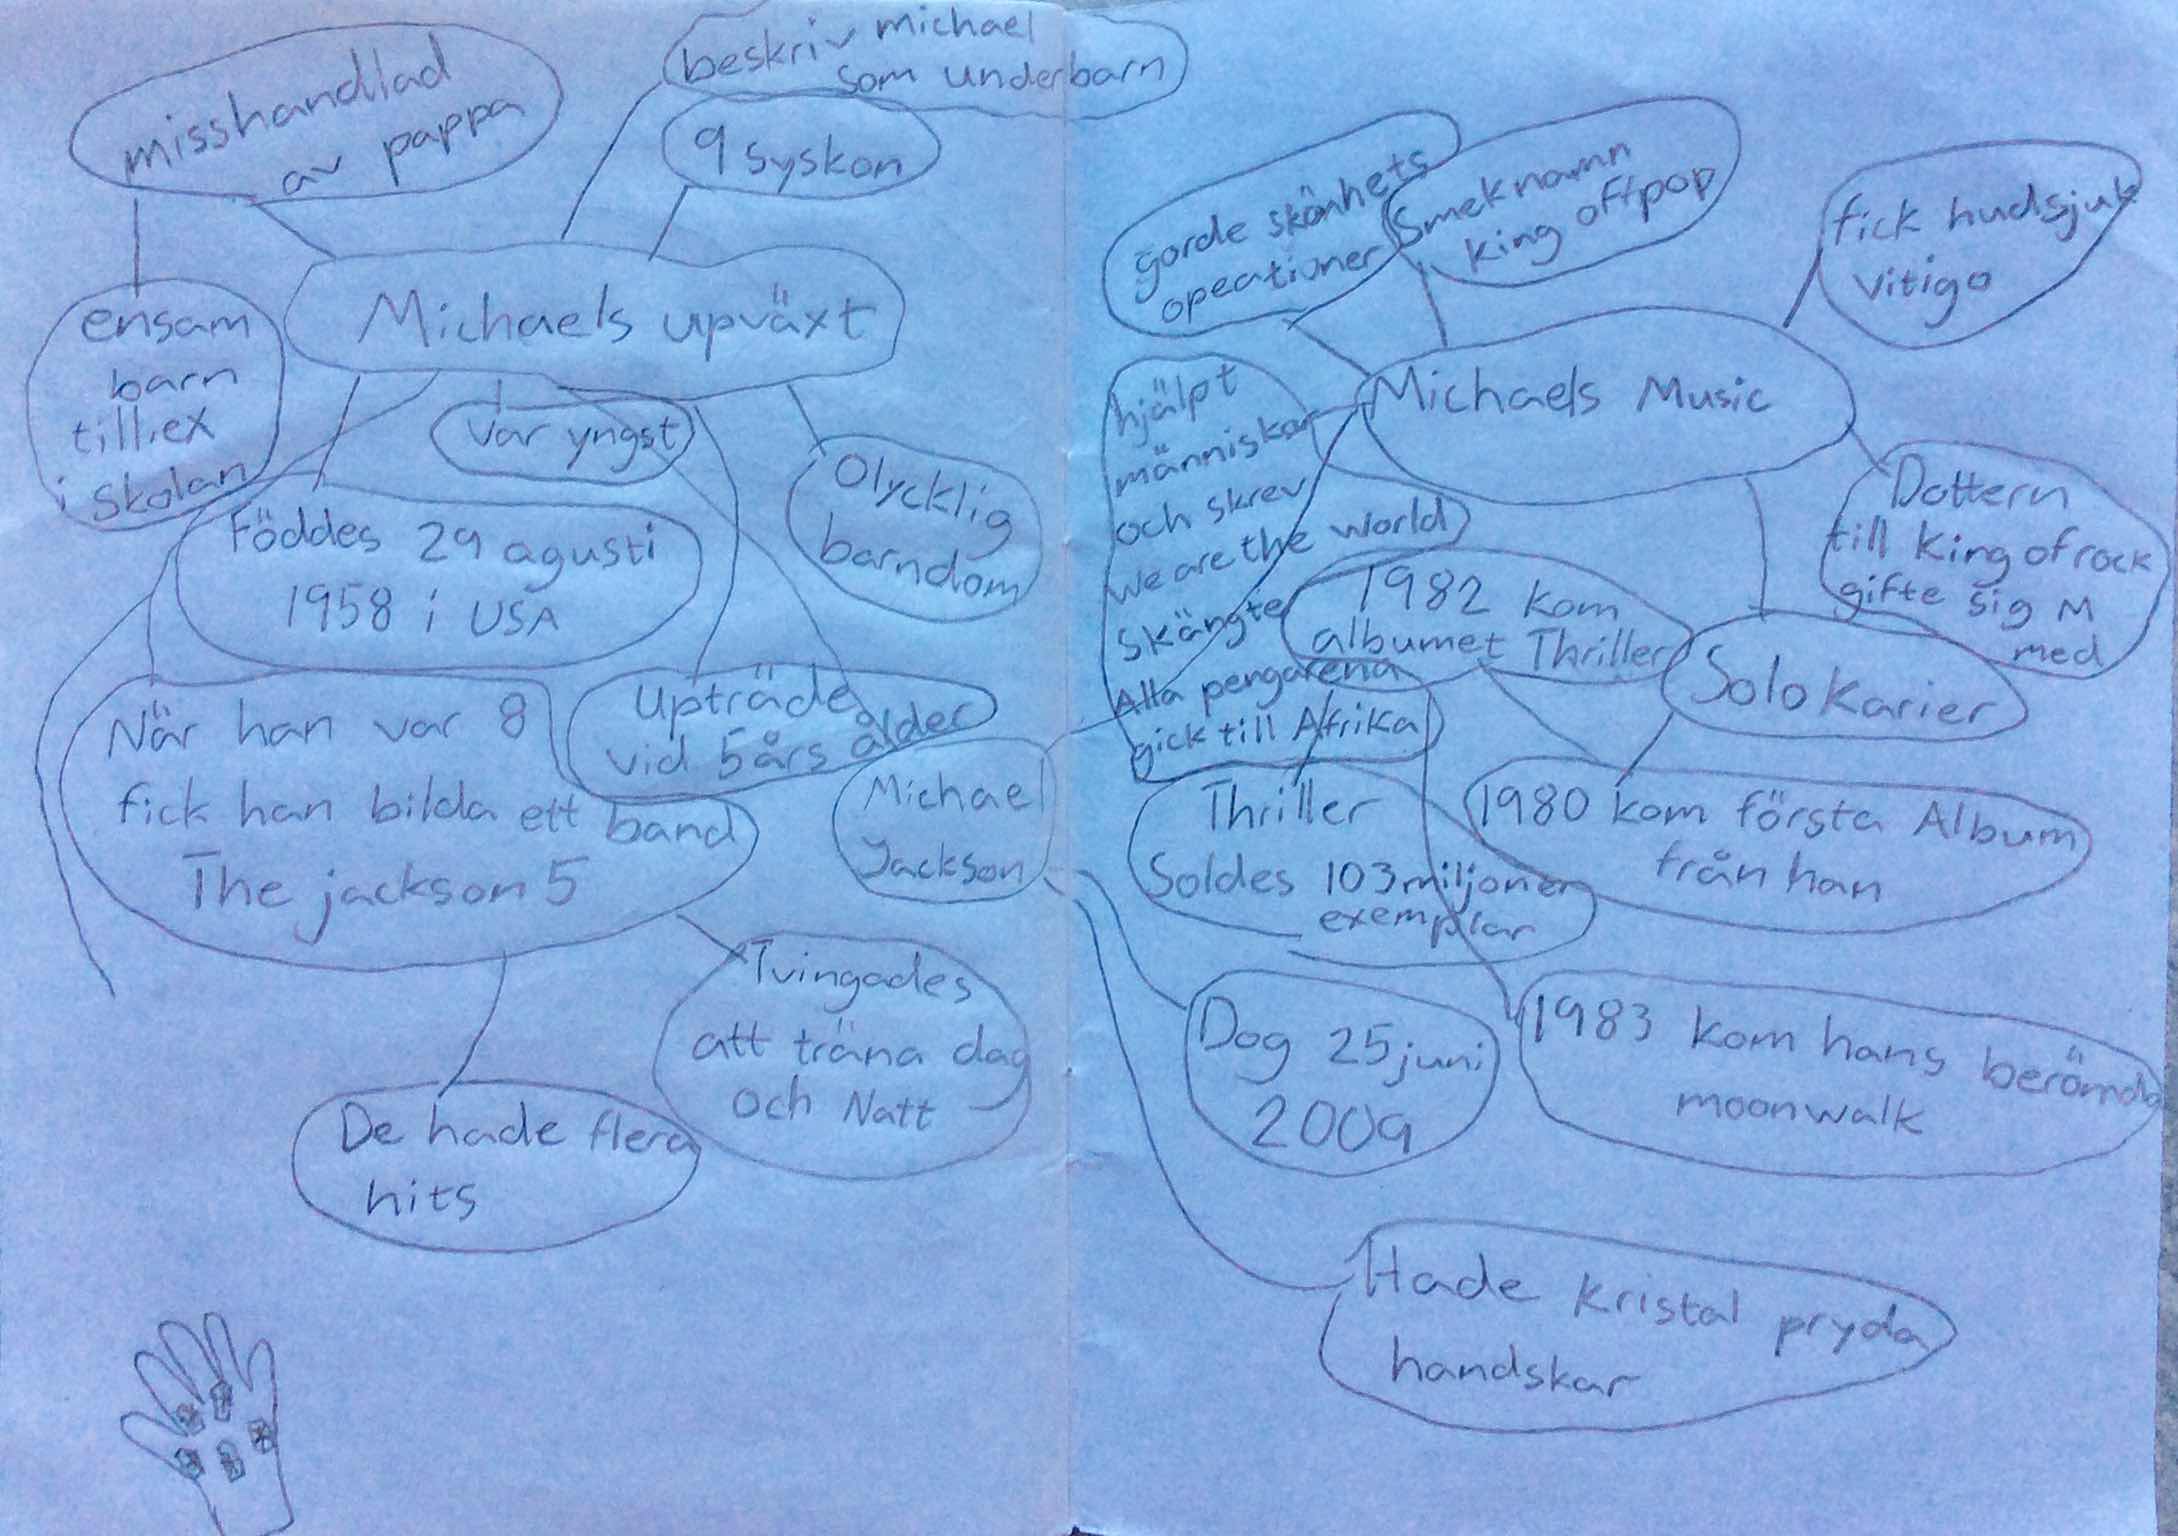 misshandlad
av pappa
beskriv michael
som underbarn
9 syskon
Michaels upväxt
ensam
barn
till.ex
i skolan
var yngst
Olycklig
barndom
Föddes 29 agusti
1958 i USA
När han var 8
fick han bilda ett band
The jackson 5
Upträde
vid 5års ålder
Michael
Jackson
Tvingades
att träna dag
och Natt
De hade flera
hits
gorde skönhets
opeationer
Smeknamn
king oftpop
fick hudsjuk
vitigo
Michaels Music
hjälpt
människor
och skrev
we are the world
Skängte
Alla pengarena
gick till Afrika
Dottern
till King of rock
gifte sig M
med
1982 kom
albumet Thriller
Solo Karier
Thriller
Soldes 103 miljoner
exemplar
1980 kom första Album
från han
Dog 25 juni
2009
1983 kom hans berömda
moonwalk
Hade kristal pryda
handskar